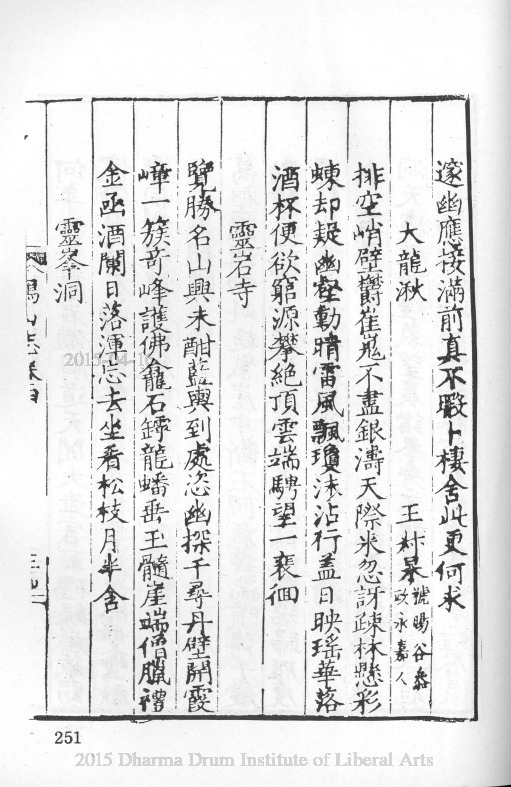 邃幽應接滿前真不暇卜棲舍此更何求
大龍湫 王叔杲號暘谷參政永嘉人
排空峭壁鬱崔嵬不盡銀濤天際來忽訝疎林懸彩
蝀却疑幽壑動晴雷風飄瓊沫沾行蓋日映瑤華落
酒杯便欲窮源攀絕頂雲端騁望一裵徊
靈岩寺
覽勝名山興未酣藍輿到處恣幽探千尋丹壁開霞
嶂一簇奇峰護佛龕石罅龍蟠垂玉髓崖端僧臘禮
金函酒闌日落渾忘去坐看松枝月半含
靈峯洞
鴈山志
251
2015-04-1
2015 Dharma Drum Institute of Liberal Arts